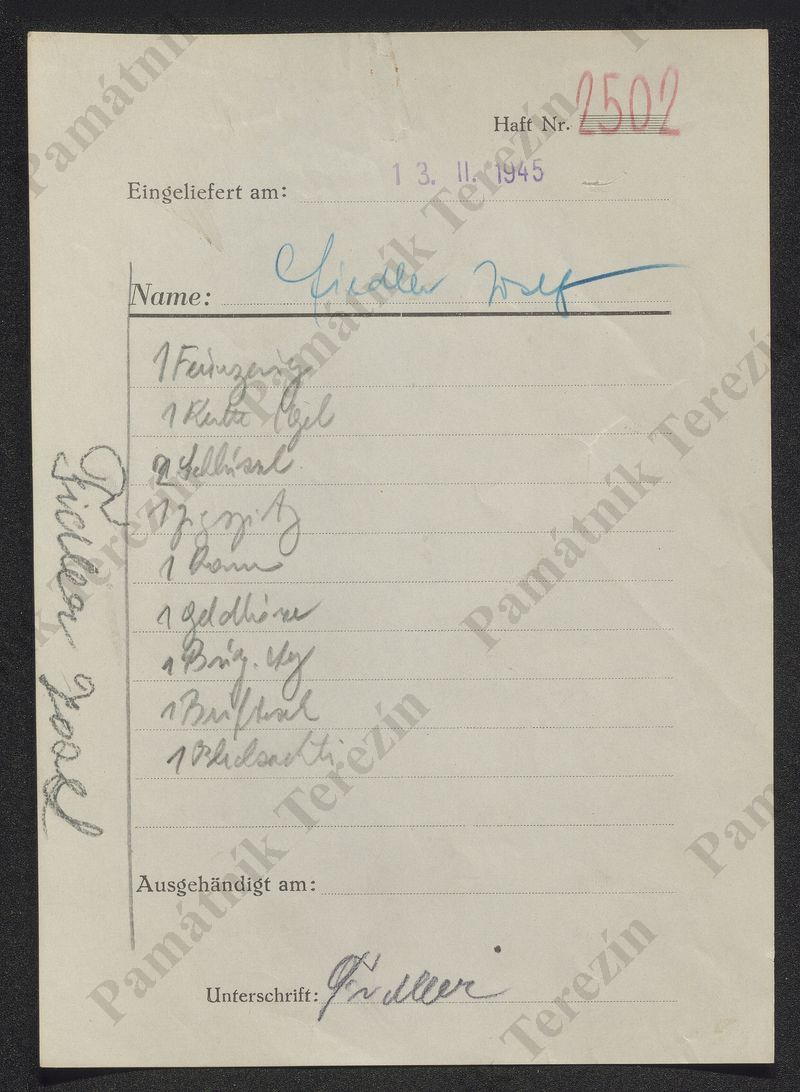 Haft Nr. 2502
Eingeliefert am: 13. II. 1945
Name: Fiedler Josef
1 Feuerzeug
1 Kette
2 Schlüssel
1 Zig. spitz
1 Kamm
1 Geldbörse
1
1 Brieftasch
1 Blechschachti
Fiedler Josef
Ausgehändigt am:
Unterschrift: Fiedler
Památník Terezín